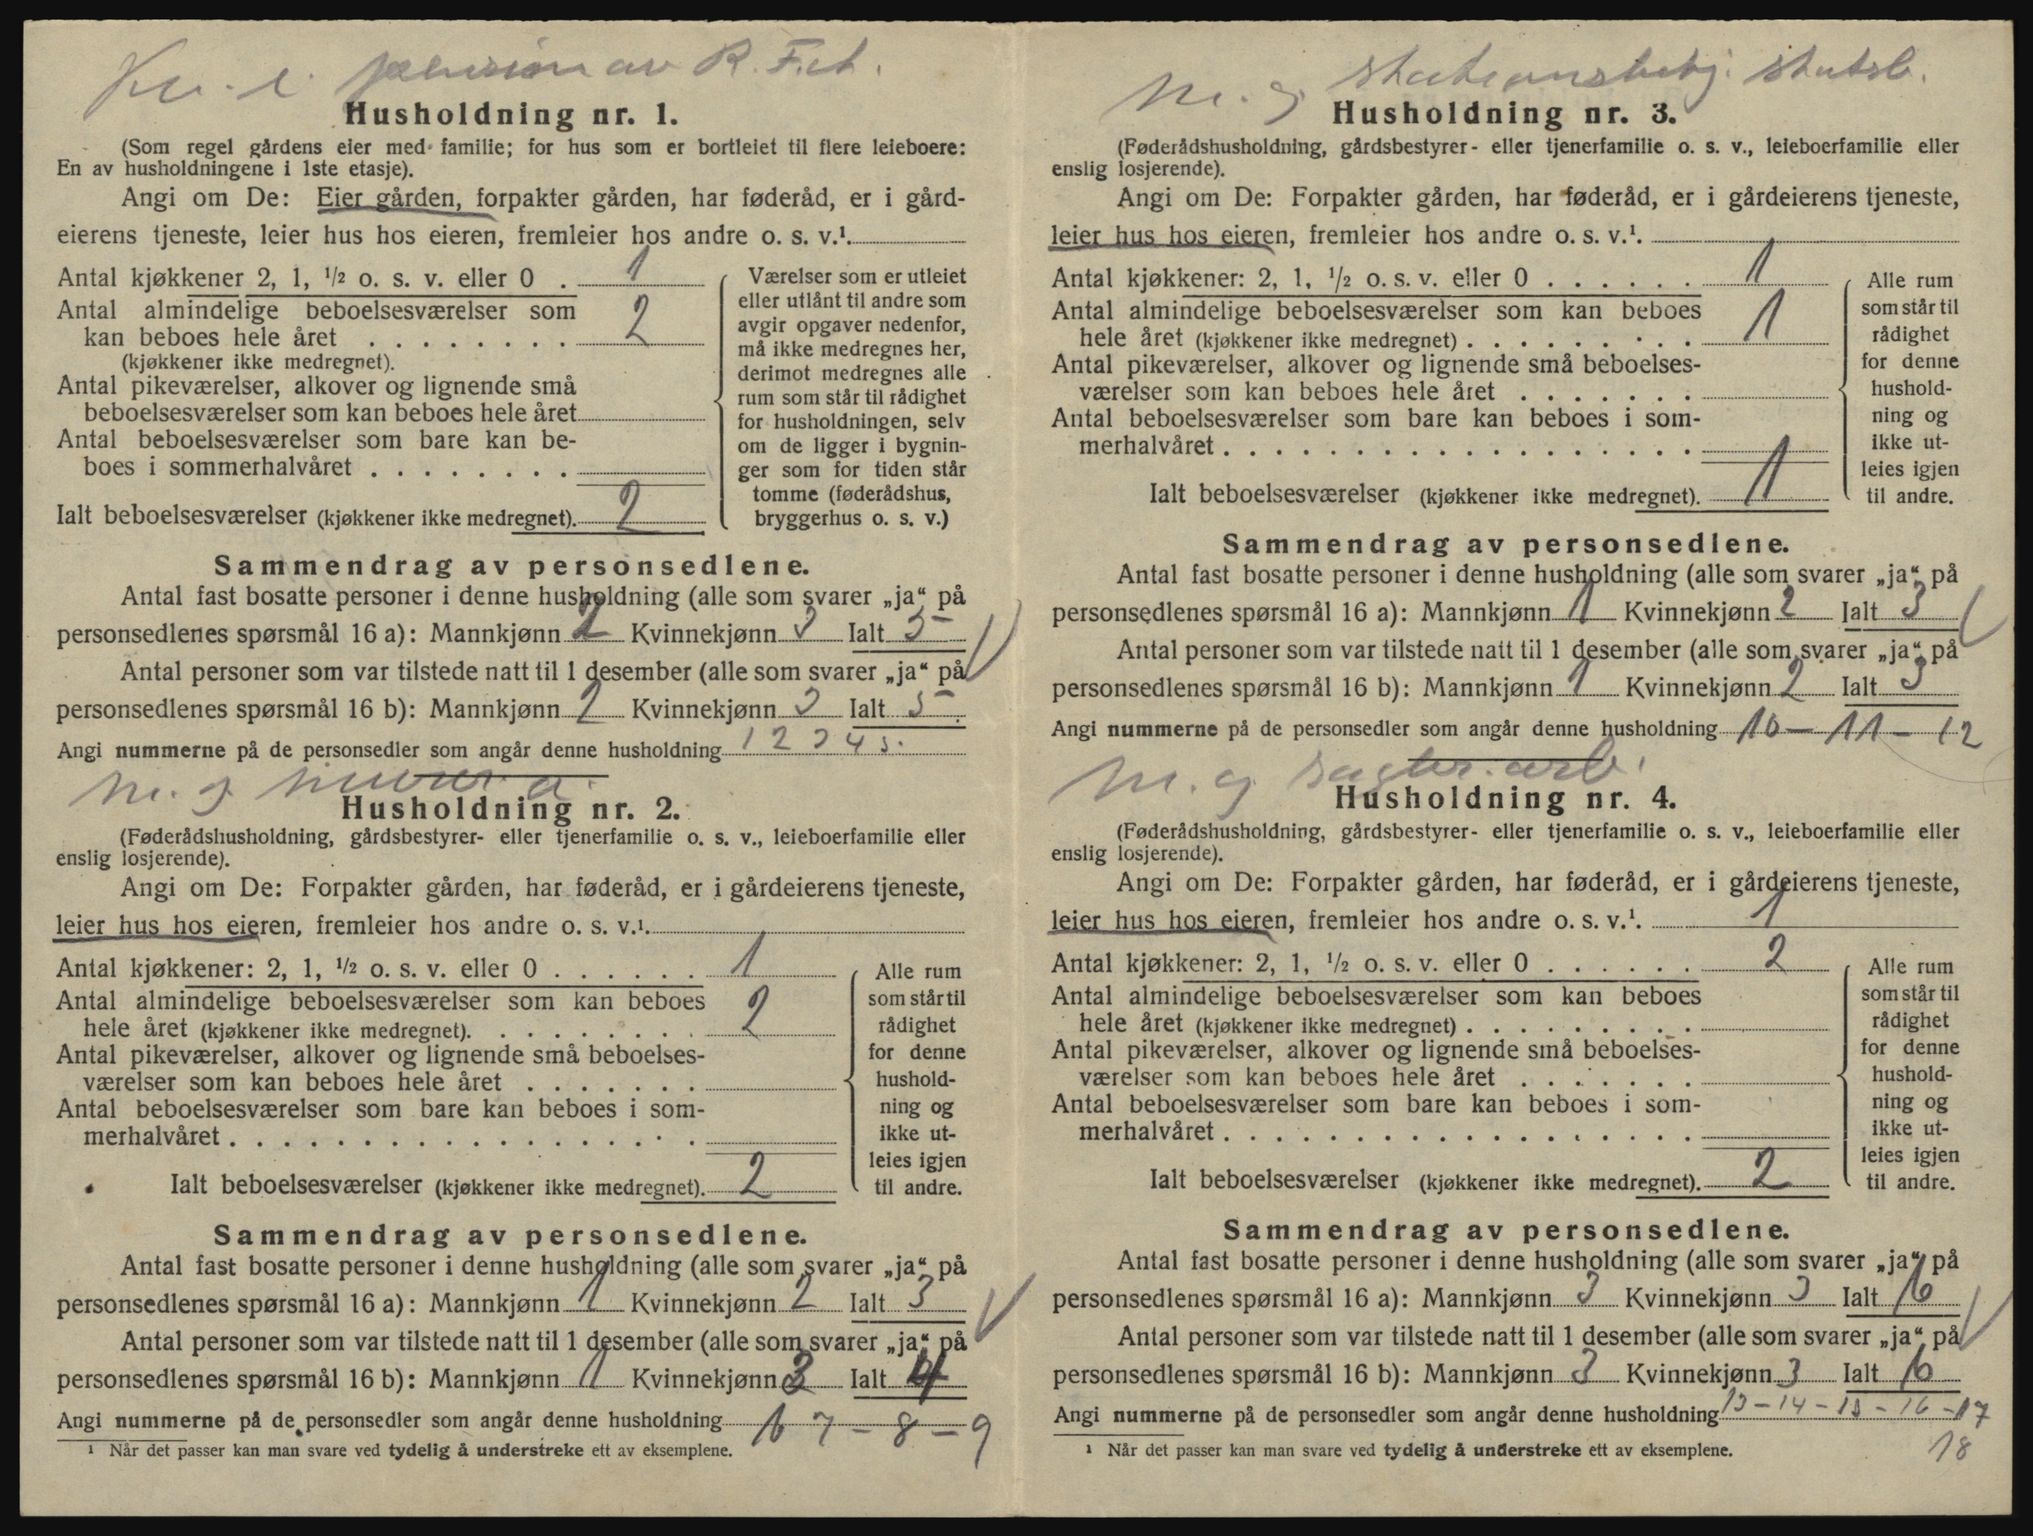 pension av R. F.
Husholdning nr. 1.
(Som regel gårdens eier med familie; for hus som er bortleiet til flere leieboere:
En av husholdningene i 1ste etasje).
Angi om De: Eier gården, forpakter gården, har føderåd, er i gård-
eierens tjeneste, leier hus hos eieren, fremleier hos andre o. s. v.¹.
Antal kjøkkener 2, 1, ½ o. s. v. eller 0 . 1
Antal almindelige beboelsesværelser som
kan beboes hele året . . . . . . . . 2
(kjøkkener ikke medregnet).
Antal pikeværelser, alkover og lignende små
beboelsesværelser som kan beboes hele året
Antal beboelsesværelser som bare kan be-
boes i sommerhalvåret . . . . . . . .
Ialt beboelsesværelser (kjøkkener ikke medregnet). 2
Værelser som er utleiet
eller utlånt til andre som
avgir opgaver nedenfor,
må ikke medregnes her,
derimot medregnes alle
rum som står til rådighet
for husholdningen, selv
om de ligger i bygnin-
ger som for tiden står
tomme (føderådshus,
bryggerhus o. s. v.)
Sammendrag av personsedlene.
Antal fast bosatte personer i denne husholdning (alle som svarer „ja“ på
personsedlenes spørsmål 16 a): Mannkjønn 2 Kvinnekjønn 3 Ialt 5
Antal personer som var tilstede natt til 1 desember (alle som svarer „ja“ på
personsedlenes spørsmål 16 b): Mannkjønn 2 Kvinnekjønn 3 Ialt 5
Angi nummerne på de personsedler som angår denne husholdning 1 2 3 4 5.
m. g. murer a.
Husholdning nr. 2.
(Føderådshusholdning, gårdsbestyrer- eller tjenerfamilie o. s. v., leieboerfamilie eller
enslig losjerende).
Angi om De: Forpakter gården, har føderåd, er i gårdeierens tjeneste,
leier hus hos eieren, fremleier hos andre o. s. v.¹.
Antal kjøkkener: 2, 1, ½ o. s. v. eller 0 . . . . . . 1
Antal almindelige beboelsesværelser som kan beboes
hele året (kjøkkener ikke medregnet). . . . . . . . . 2
Antal pikeværelser, alkover og lignende små beboelses-
værelser som kan beboes hele året . . . . . . .
Antal beboelsesværelser som bare kan beboes i som-
merhalvåret . . . . . . . . . . . . . . . . . .
Ialt beboelsesværelser (kjøkkener ikke medregnet). 2
Alle rum
som står til
rådighet
for denne
hushold-
ning og
ikke ut-
leies igjen
til andre.
Sammendrag av personsedlene.
Antal fast bosatte personer i denne husholdning (alle som svarer „ja“ på
personsedlenes spørsmål 16 a): Mannkjønn 1 Kvinnekjønn 2 Ialt 3
Antal personer som var tilstede natt til 1 desember (alle som svarer „ja“ på
personsedlenes spørsmål 16 b): Mannkjønn 1 Kvinnekjønn 3 Ialt 4
Angi nummerne på de personsedler som angår denne husholdning 6 7 - 8 - 9
¹ Når det passer kan man svare ved tydelig å understreke ett av eksemplene.
m. g. stationsbetj. statsb.
Husholdning nr. 3.
(Føderådshusholdning, gårdsbestyrer- eller tjenerfamilie o. s. v., leieboerfamilie eller
enslig losjerende).
Angi om De: Forpakter gården, har føderåd, er i gårdeierens tjeneste,
leier hus hos eieren, fremleier hos andre o. s. v.¹.
Antal kjøkkener: 2, 1, ½ o. s. v. eller 0 . . . . . . 1
Antal almindelige beboelsesværelser som kan beboes
hele året (kjøkkener ikke medregnet) . . . . . . . . . 1
Antal pikeværelser, alkover og lignende små beboelses-
værelser som kan beboes hele året . . . . . . .
Antal beboelsesværelser som bare kan beboes i som-
merhalvåret . . . . . . . . . . . . . . . . . .
Ialt beboelsesværelser (kjøkkener ikke medregnet). 1
Alle rum
som står til
rådighet
for denne
hushold-
ning og
ikke ut-
leies igjen
til andre.
Sammendrag av personsedlene.
Antal fast bosatte personer i denne husholdning (alle som svarer „ja“ på
personsedlenes spørsmål 16 a): Mannkjønn 1 Kvinnekjønn 2 Ialt 3
Antal personer som var tilstede natt til 1 desember (alle som svarer „ja“ på
personsedlenes spørsmål 16 b): Mannkjønn 1 Kvinnekjønn 2 Ialt 3
Angi nummerne på de personsedler som angår denne husholdning 10 - 11 - 12
m. g. arb.
Husholdning nr. 4.
(Føderådshusholdning, gårdsbestyrer- eller tjenerfamilie o. s. v., leieboerfamilie eller
enslig losjerende).
Angi om De: Forpakter gården, har føderåd, er i gårdeierens tjeneste,
leier hus hos eieren, fremleier hos andre o. s. v.¹. 1
Antal kjøkkener: 2, 1, ½ o. s. v. eller 0 . . . . . . 2
Antal almindelige beboelsesværelser som kan beboes
hele året (kjøkkener ikke medregnet) . . . . . . . . .
Antal pikeværelser, alkover og lignende små beboelses-
værelser som kan beboes hele året . . . . . . .
Antal beboelsesværelser som bare kan beboes i som-
merhalvåret . . . . . . . . . . . . . . . . . .
Ialt beboelsesværelser (kjøkkener ikke medregnet). 2
Alle rum
som står til
rådighet
for denne
hushold-
ning og
ikke ut-
leies igjen
til andre.
Sammendrag av personsedlene.
Antal fast bosatte personer i denne husholdning (alle som svarer „ja“ på
personsedlenes spørsmål 16 a): Mannkjønn 3 Kvinnekjønn 3 Ialt 6
Antal personer som var tilstede natt til 1 desember (alle som svarer „ja“ på
personsedlenes spørsmål 16 b): Mannkjønn 3 Kvinnekjønn 3 Ialt 6
Angi nummerne på de personsedler som angår denne husholdning 13 - 14 - 15 - 16 - 17
18
¹ Når det passer kan man svare ved tydelig å understreke ett av eksemplene.